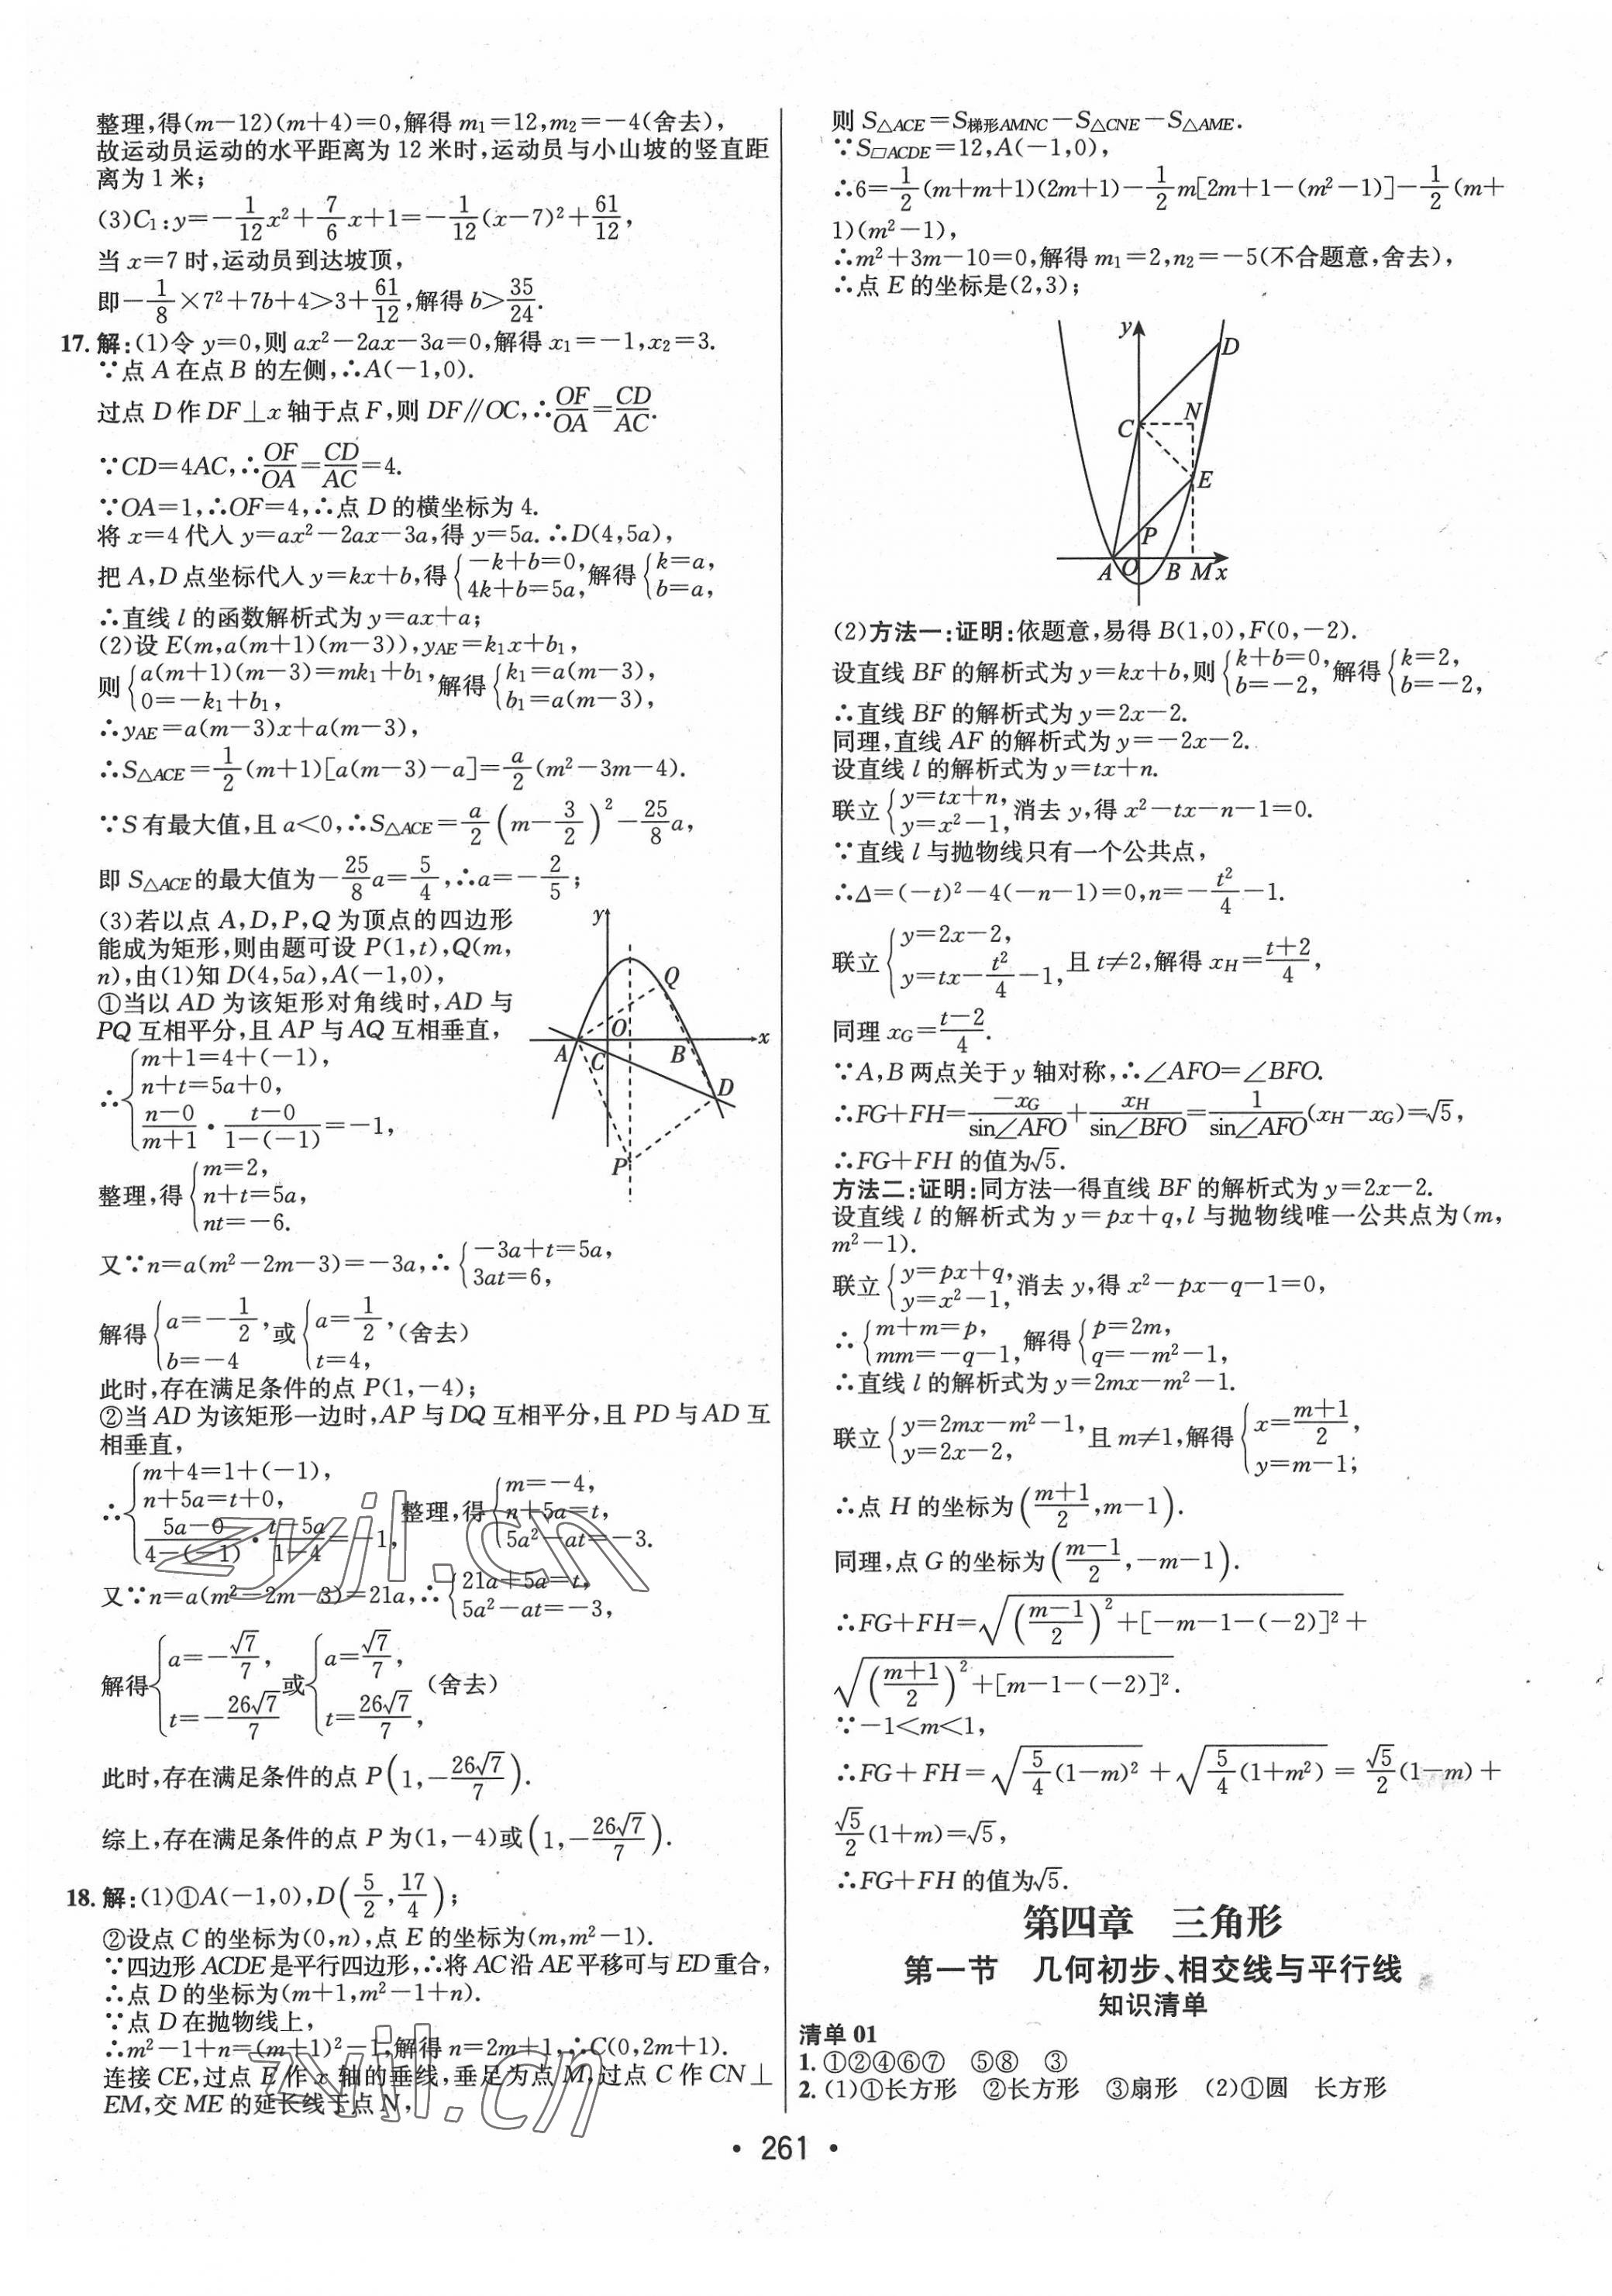 整理,得(m−12)(m+4)=0,解得 m₁=12,m₂=−4(舍去),
故运动员运动的水平距离为 12 米时,运动员与小山坡的竖直距
离为 1 米;
(3)C₁:y=−1/12x²+7/6x+1=−1/12(x−7)²+61/12,
当 x=7 时,运动员到达坡顶,
即−1/8×7²+7b+4>3+61/12,解得 b>35/24.
17. 解:(1)令 y=0,则 ax²−2ax−3a=0,解得 x₁=−1,x₂=3.
∵点 A 在点 B 的左侧,∴A(−1,0).
过点 D 作 DF⊥x 轴于点 F,则 DF∥OC,∴OF/OA=CD/AC.
∵CD=4AC,∴OF/OA=CD/AC=4.
∵OA=1,∴OF=4,∴点 D 的横坐标为 4.
将 x=4 代入 y=ax²−2ax−3a,得 y=5a.∴D(4,5a),
把 A,D 点坐标代入 y=kx+b,得{−k+b=0, 4k+b=5a,解得{k=a, b=a,
∴直线 l 的函数解析式为 y=ax+a;
(2)设 E(m,a(m+1)(m−3)),y_AE=k₁x+b₁,
则{a(m+1)(m−3)=mk₁+b₁, 0=−k₁+b₁,解得{k₁=a(m−3), b₁=a(m−3),
∴y_AE=a(m−3)x+a(m−3),
∴S△ACE=1/2(m+1)[a(m−3)−a]=a/2(m²−3m−4).
∵S 有最大值,且 a<0,∴S△ACE=a/2(m−3/2)²−25/8a,
即 S△ACE的最大值为−25/8a=5/4,∴a=−2/5;
(3)若以点 A,D,P,Q 为顶点的四边形
能成为矩形,则由题可设 P(1,t),Q(m,
n),由(1)知 D(4,5a),A(−1,0),
①当以 AD 为该矩形对角线时,AD 与
PQ 互相平分,且 AP 与 AQ 互相垂直,
∴{m+1=4+(−1), n+t=5a+0, (n−0)/(m+1)·(t−0)/(1−(−1))=−1,
整理,得{m=2, n+t=5a, nt=−6.
y
Q
O
x
A
C
B
D
P
又∵n=a(m²−2m−3)=−3a,∴{−3a+t=5a, 3at=6,
解得{a=−1/2, b=−4 或{a=1/2, t=4,(舍去)
此时,存在满足条件的点 P(1,−4);
②当 AD 为该矩形一边时,AP 与 DQ 互相平分,且 PD 与 AD 互
相垂直,
∴{m+4=1+(−1), n+5a=t+0, (5a−0)/(4−(−1))·(t−5a)/(1−4)=−1,整理,得{m=−4, n+5a=t, 5a²−at=−3.
又∵n=a(m²−2m−3)=21a,∴{21a+5a=t, 5a²−at=−3,
解得{a=−√7/7, t=−26√7/7 或{a=√7/7, t=26√7/7,(舍去)
此时,存在满足条件的点 P(1,−26√7/7).
综上,存在满足条件的点 P 为(1,−4)或(1,−26√7/7).
18. 解:(1)①A(−1,0),D(5/2,17/4);
②设点 C 的坐标为(0,n),点 E 的坐标为(m,m²−1).
∵四边形 ACDE 是平行四边形,∴将 AC 沿 AE 平移可与 ED 重合,
∴点 D 的坐标为(m+1,m²−1+n).
∵点 D 在抛物线上,
∴m²−1+n=(m+1)²−1,解得 n=2m+1,∴C(0,2m+1).
连接 CE,过点 E 作 x 轴的垂线,垂足为点 M,过点 C 作 CN⊥
EM,交 ME 的延长线于点 N,
则 S△ACE=S梯形AMNC−S△CNE−S△AME.
∵S□ACDE=12,A(−1,0),
∴6=1/2(m+m+1)(2m+1)−1/2m[2m+1−(m²−1)]−1/2(m+
1)(m²−1),
∴m²+3m−10=0,解得 m₁=2,n₂=−5(不合题意,舍去),
∴点 E 的坐标是(2,3);
y
D
N
C
E
P
A
O
B
M
x
(2)方法一:证明:依题意,易得 B(1,0),F(0,−2).
设直线 BF 的解析式为 y=kx+b,则{k+b=0, b=−2,解得{k=2, b=−2,
∴直线 BF 的解析式为 y=2x−2.
同理,直线 AF 的解析式为 y=−2x−2.
设直线 l 的解析式为 y=tx+n.
联立{y=tx+n, y=x²−1,消去 y,得 x²−tx−n−1=0.
∵直线 l 与抛物线只有一个公共点,
∴Δ=(−t)²−4(−n−1)=0,n=−t²/4−1.
联立{y=2x−2, y=tx−t²/4−1,且 t≠2,解得 x_H=(t+2)/4,
同理 x_G=(t−2)/4.
∵A,B 两点关于 y 轴对称,∴∠AFO=∠BFO.
∴FG+FH=−x_G/sin∠AFO+x_H/sin∠BFO=1/sin∠AFO(x_H−x_G)=√5,
∴FG+FH 的值为√5.
方法二:证明:同方法一得直线 BF 的解析式为 y=2x−2.
设直线 l 的解析式为 y=px+q,l 与抛物线唯一公共点为(m,
m²−1).
联立{y=px+q, y=x²−1,消去 y,得 x²−px−q−1=0,
∴{m+m=p, mm=−q−1,解得{p=2m, q=−m²−1,
∴直线 l 的解析式为 y=2mx−m²−1.
联立{y=2mx−m²−1, y=2x−2,且 m≠1,解得{x=(m+1)/2, y=m−1;
∴点 H 的坐标为((m+1)/2,m−1).
同理,点 G 的坐标为((m−1)/2,−m−1).
∴FG+FH=√(((m−1)/2)²+[−m−1−(−2)]²)+
√(((m+1)/2)²+[m−1−(−2)]²).
∵−1<m<1,
∴FG+FH=√(5/4(1−m)²)+√(5/4(1+m²))=√5/2(1−m)+
√5/2(1+m)=√5,
∴FG+FH 的值为√5.
第四章 三角形
第一节 几何初步、相交线与平行线
知识清单
清单 01
1. ①②④⑥⑦ ⑤⑧ ③
2. (1)①长方形 ②长方形 ③扇形 (2)①圆 长方形
• 261 •
zyjl.cn
zyjl.cn